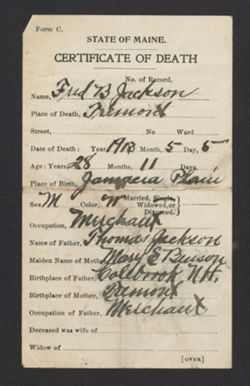 Form C.
STATE OF MAINE.
CERTIFICATE OF DEATH
No. of Record,
Name, Fred B Jackson
Place of Death, Tremont
Street, No Ward
Date of Death: Year, Month, 5 Day, 5
Age: Years, 28 Months, 11 Days,
Place of Birth, Jamacia Plain
Sex, M Color, W Married, Single, Widowed, or Divorced.
Occupation,
Name of Father, Thomas Jackson
Maiden Name of Mother, Mary E
Birthplace of Father, Colbrook N.H.
Birthplace of Mother, Tremont
Occupation of Father,
Deceased was wife of
Widow of
[OVER]